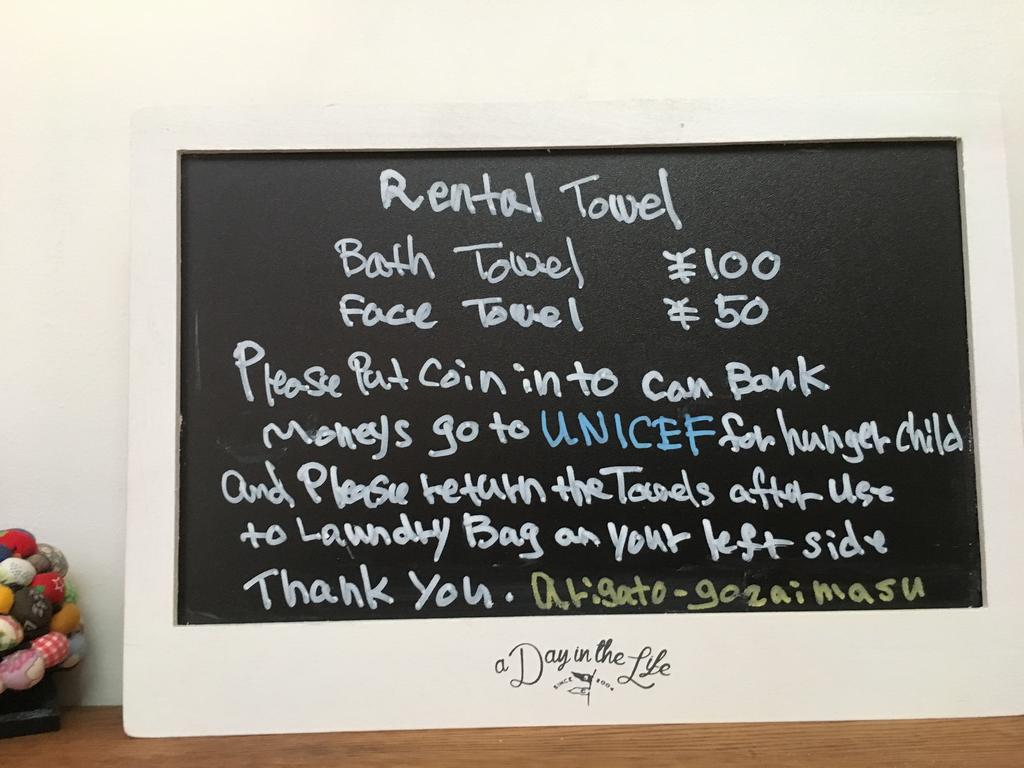 Rental Towel
Bath Towel ¥100
Face Towel ¥50
Please Put Coin in to Can Bank
Moneys go to UNICEF for hunger child
and Please return the Towels after use
to Laundry Bag on your left side
Thank You. Arigato-gozaimasu
a Day in the Life
SINCE 2004